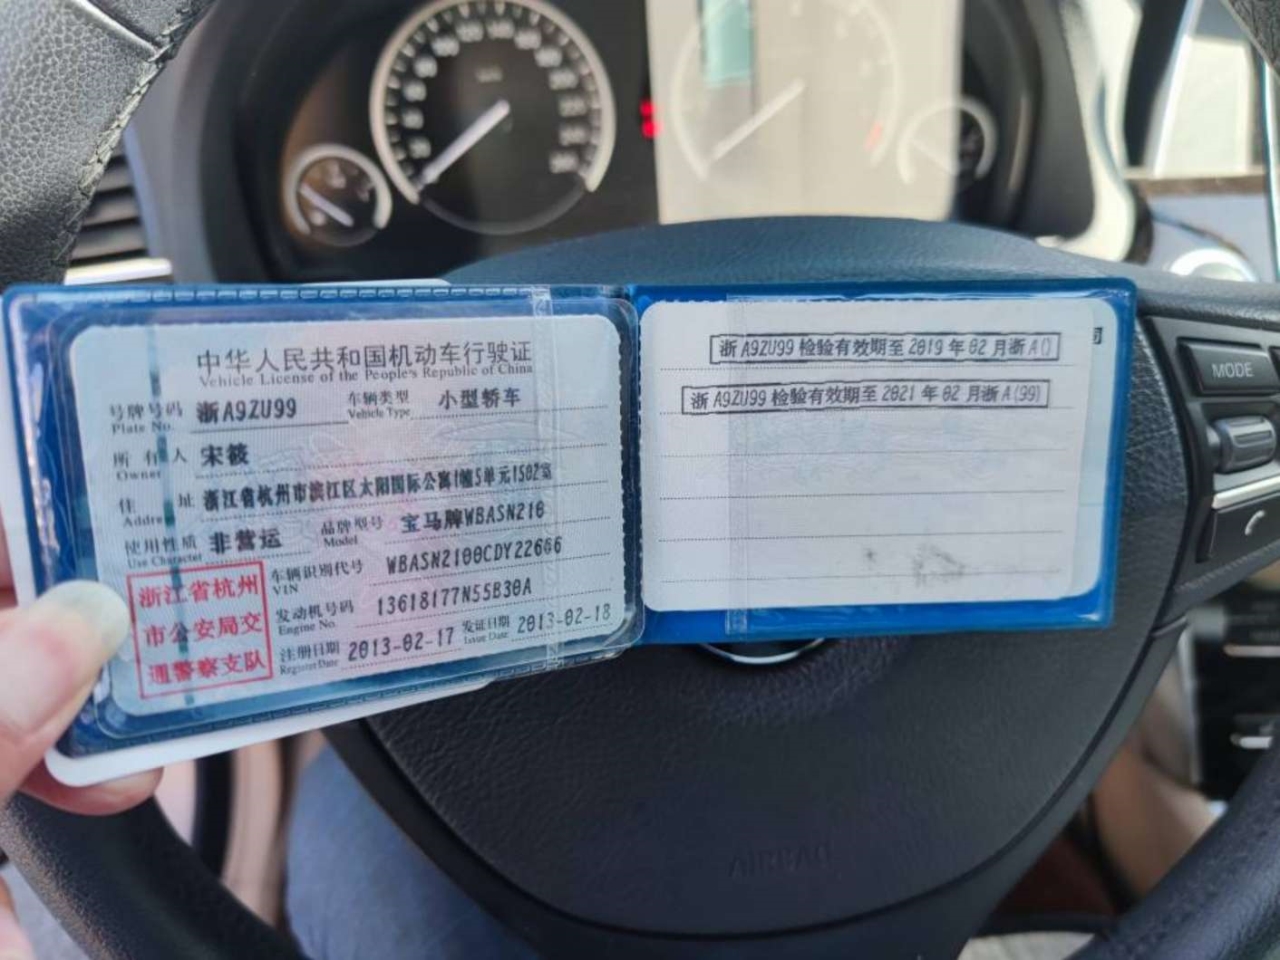 中华人民共和国机动车行驶证
Vehicle License of the People's Republic of China
号牌号码 浙A9ZU99 车辆类型 小型轿车
Plate No. Vehicle Type
所有人 宋筱
Owner
住址 浙江省杭州市滨江区太阳国际公寓1幢5单元1502室
Address
使用性质 非营运 品牌型号 宝马牌WBASN210
Use Character Model
车辆识别代号 WBASN2100CDY22666
VIN
发动机号码 13618177N55B30A
Engine No.
注册日期 2013-02-17 发证日期 2013-02-18
Register Date Issue Date
浙江省杭州
市公安局交
通警察支队
浙A9ZU99检验有效期至2019年02月浙A()
浙A9ZU99检验有效期至2021年02月浙A(99)
MODE
AIRBAG